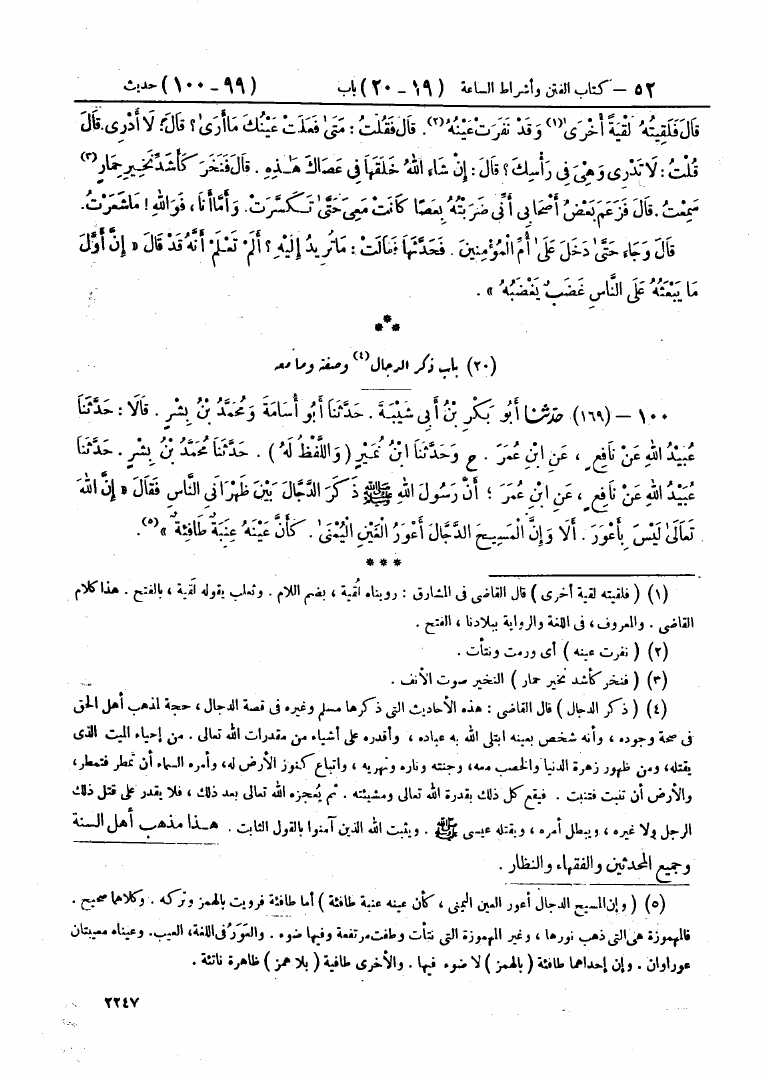 ٥٢ – كتاب الفتن وأشراط الساعة (١٩ – ٢٠) باب (٩٩ – ١٠٠) حديث
قَالَ فَلَقِيتُهُ لَقْيَةً أُخْرَىٰ(١) وَقَدْ نَفَرَتْ عَيْنُهُ(٢). قَالَ فَقُلْتُ: مَتَىٰ فَعَلَتْ عَيْنُكَ مَا أَرَىٰ؟ قَالَ: لَا أَدْرِى. قَالَ
قُلْتُ: لَا تَدْرِى وَهِىَ فِى رَأْسِكَ؟ قَالَ: إِنْ شَاءَ اللهُ خَلَقَهَا فِى عَصَاكَ هَٰذِهِ. قَالَ فَنَخَرَ كَأَشَدِّ نَخِيرِ حِمَارٍ(٣)
سَمِعْتُ. قَالَ فَزَعَمَ بَعْضُ أَصْحَابِى أَنِّى ضَرَبْتُهُ بِعَصًا كَانَتْ مَعِىَ حَتَّىٰ تَكَسَّرَتْ. وَأَمَّا أَنَا، فَوَاللهِ! مَا شَعَرْتُ.
قَالَ وَجَاءَ حَتَّىٰ دَخَلَ عَلَىٰ أُمِّ الْمُؤْمِنِينَ. فَحَدَّثَهَا فَقَالَتْ: مَا تُرِيدُ إِلَيْهِ؟ أَلَمْ تَعْلَمْ أَنَّهُ قَدْ قَالَ « إِنَّ أَوَّلَ
مَا يَبْعَثُهُ عَلَى النَّاسِ غَضَبٌ يَغْضَبُهُ ».
***
(٢٠) باب ذكر الدجال(٤) وصفته وما معه
١٠٠ – (١٦٩) حَدَّثَنَا أَبُو بَكْرِ بْنُ أَبِى شَيْبَةَ. حَدَّثَنَا أَبُو أُسَامَةَ وَمُحَمَّدُ بْنُ بِشْرٍ. قَالَا: حَدَّثَنَا
عُبَيْدُ اللهِ عَنْ نَافِعٍ، عَنِ ابْنِ عُمَرَ. ح وَحَدَّثَنَا ابْنُ نُمَيْرٍ (وَاللَّفْظُ لَهُ). حَدَّثَنَا مُحَمَّدُ بْنُ بِشْرٍ. حَدَّثَنَا
عُبَيْدُ اللهِ عَنْ نَافِعٍ، عَنِ ابْنِ عُمَرَ؛ أَنَّ رَسُولَ اللهِ ﷺ ذَكَرَ الدَّجَّالَ بَيْنَ ظَهْرَانَىِ النَّاسِ فَقَالَ « إِنَّ اللهَ
تَعَالَىٰ لَيْسَ بِأَعْوَرَ. أَلَا وَإِنَّ الْمَسِيحَ الدَّجَّالَ أَعْوَرُ الْعَيْنِ الْيُمْنَىٰ. كَأَنَّ عَيْنَهُ عِنَبَةٌ طَافِئَةٌ »(٥).
***
(١) (فلقيته لقية أخرى) قال القاضى فى المشارق: رويناه لُقية، بضم اللام. وثعلب يقوله لَقية، بالفتح. هذا كلام
القاضى. والمعروف، فى اللغة والرواية ببلادنا، الفتح.
(٢) (نفرت عينه) أى ورمت ونتأت.
(٣) (فنخر كأشد نخير حمار) النخير صوت الأنف.
(٤) (ذكر الدجال) قال القاضى: هذه الأحاديث التى ذكرها مسلم وغيره فى قصة الدجال، حجة لمذهب أهل الحق
فى صحة وجوده، وأنه شخص بعينه ابتلى الله به عباده، وأقدره على أشياء من مقدرات الله تعالى. من إحياء الميت الذى
يقتله، ومن ظهور زهرة الدنيا والخصب معه، وجنته وناره ونهريه، واتباع كنوز الأرض له، وأمره السماء أن تمطر فتمطر،
والأرض أن تنبت فتنبت. فيقع كل ذلك بقدرة الله تعالى ومشيئته. ثم يُعجزه الله تعالى بعد ذلك، فلا يقدر على قتل ذلك
الرجل ولا غيره، ويبطل أمره، ويقتله عيسى ﷺ. ويثبت الله الذين آمنوا بالقول الثابت. هذا مذهب أهل السنة
وجميع المحدثين والفقهاء والنظار.
(٥) (وإن المسيح الدجال أعور العين اليمنى، كأن عينه عنبة طافئة) أما طافئة فرويت بالهمز وتركه. وكلاهما صحيح.
فالمهموزة هى التى ذهب نورها، وغير المهموزة التى نتأت وطفت مرتفعة وفيها ضوء. والعَوَر فى اللغة، العيب. وعيناه معيبتان
عوراوان. وإن إحداهما طافئة (بالهمز) لا ضوء فيها. والأخرى طافية (بلا همز) ظاهرة ناتئة.
٢٢٤٧